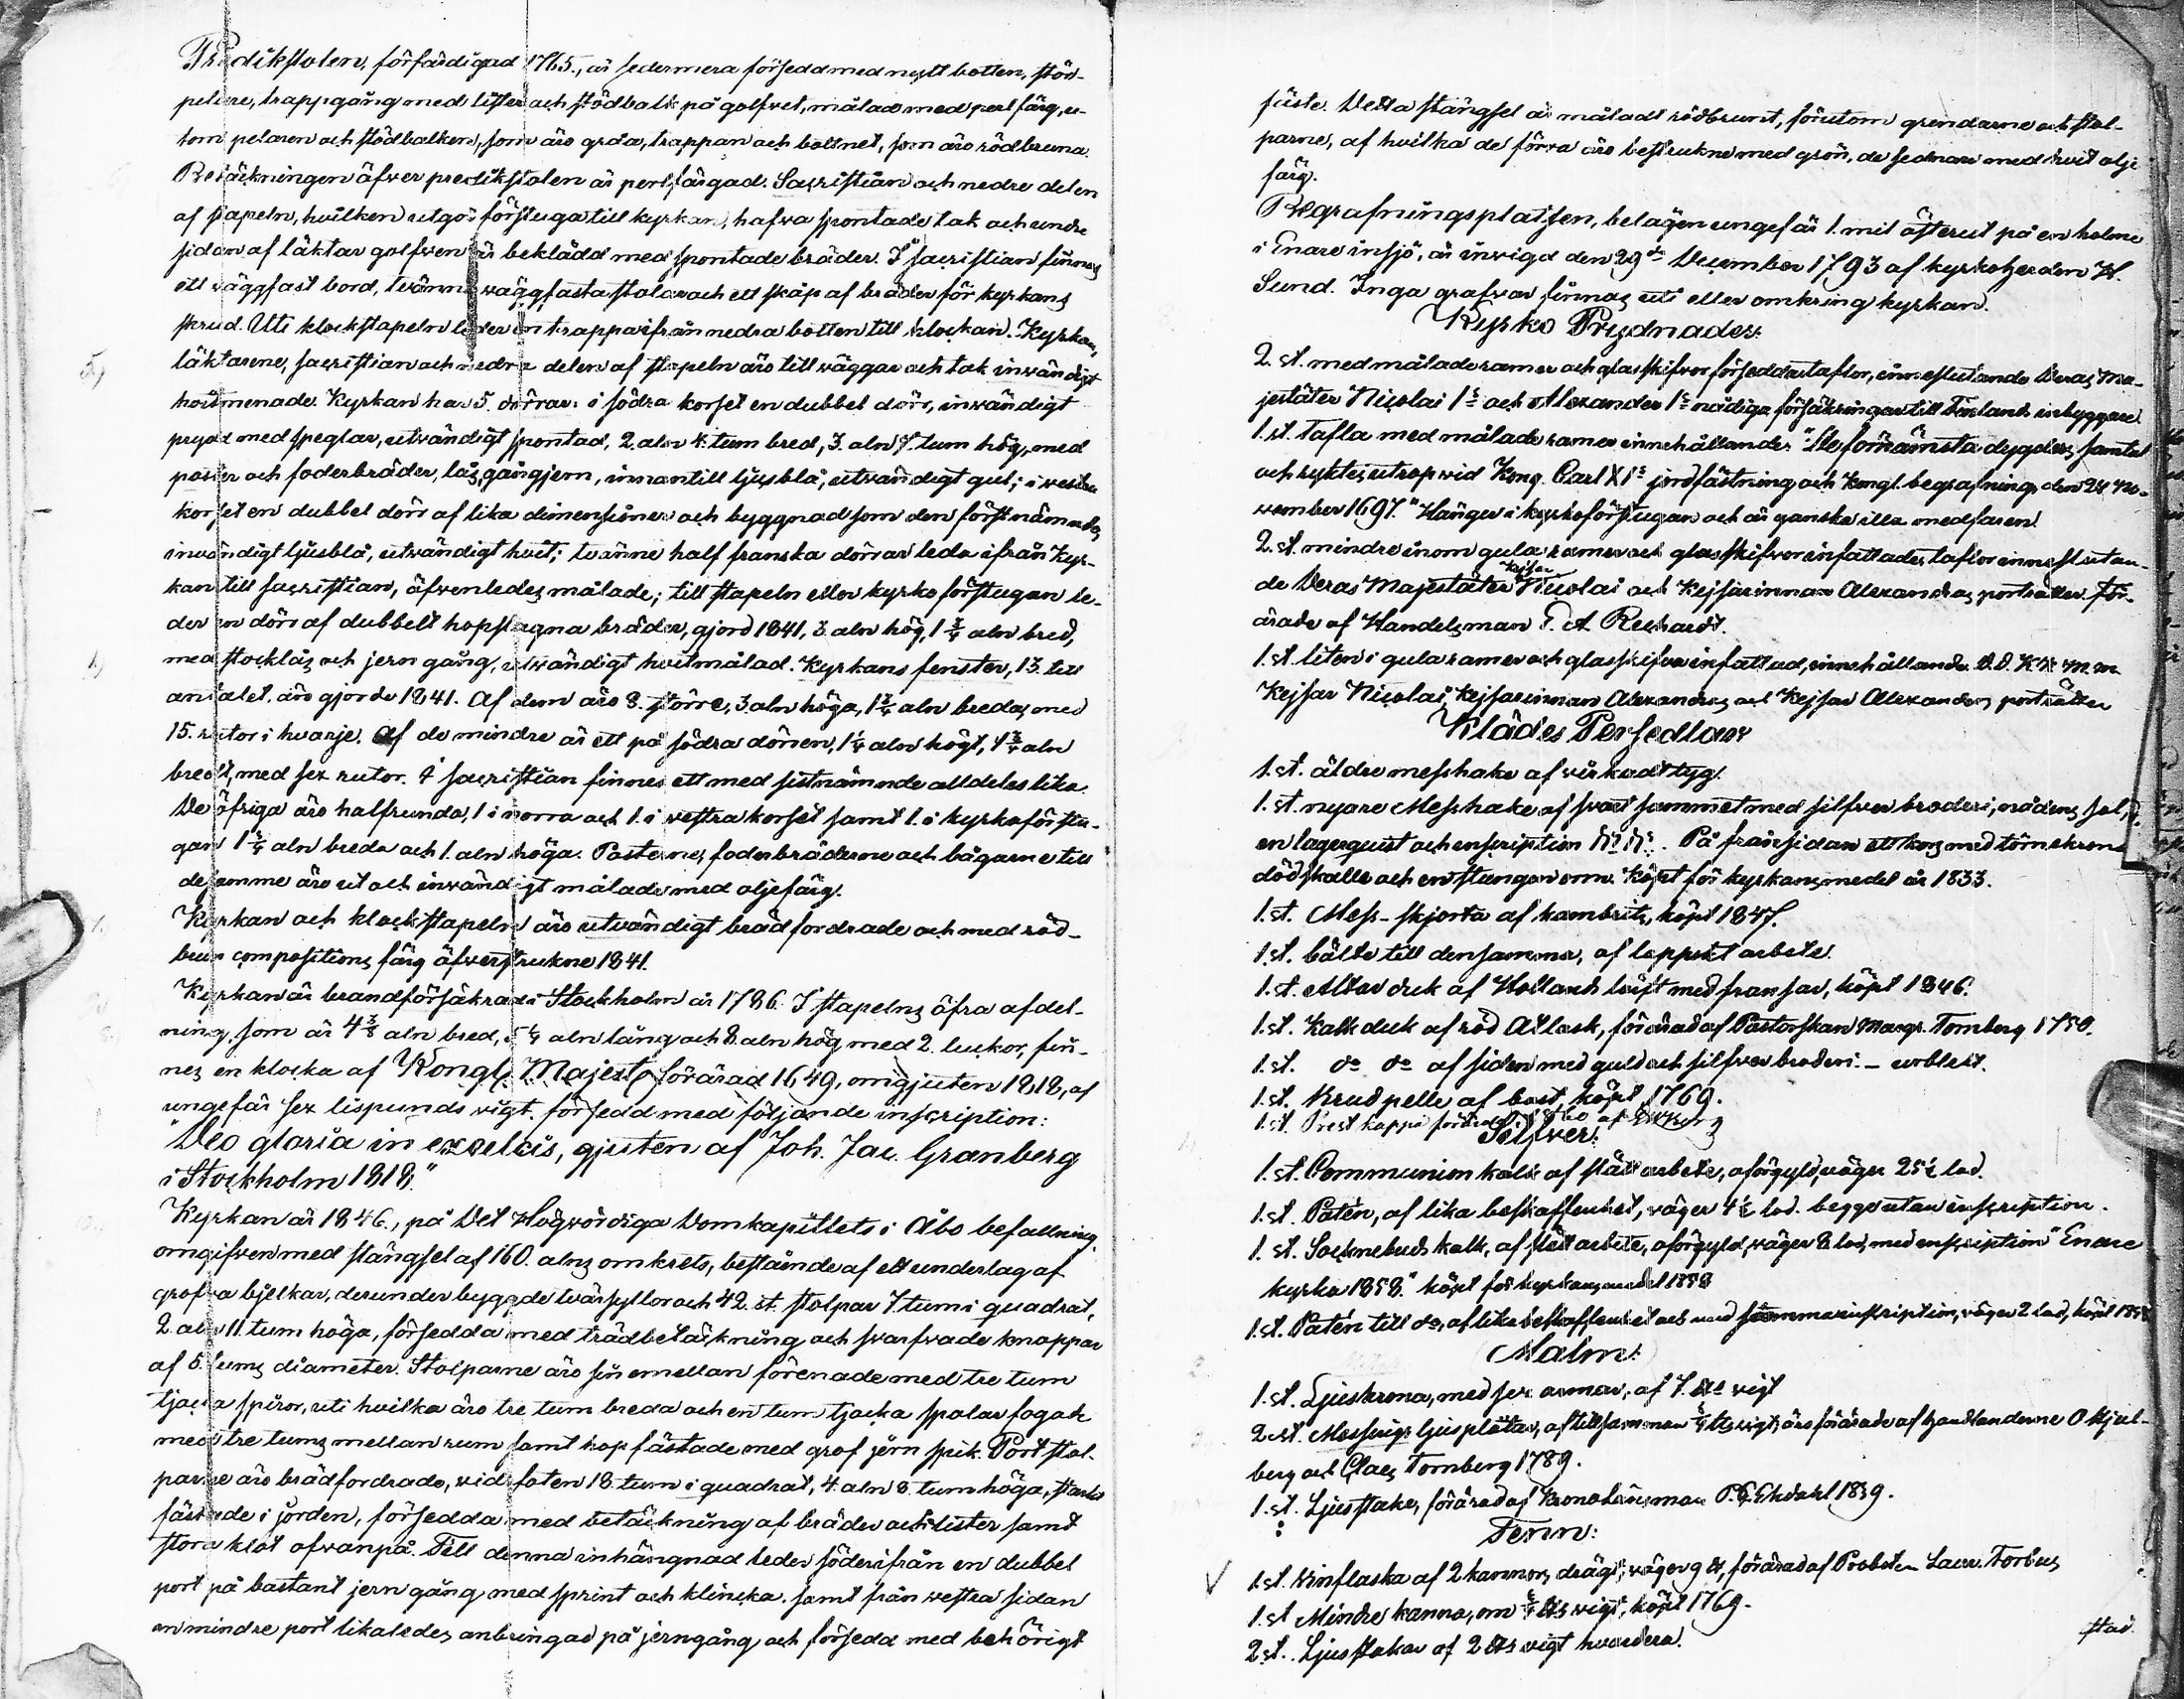 Predikstolen, förfärdigad 1765., är sedermera försedd med nytt botten, stöd-
pelare, trappgång med lister och stödbalk på golfvet, målad med perl färg, u-
tom pelaren och stödbalken, som äro gråa, trappan och bottnet, som äro rödbruna.
Betäckningen äfver predikstolen är perlfärgad. Sacristian och nedre delen
af stapeln, hvilken utgör förstuga till kyrkan, hafva spontade tak och undre
sidan af läktar golfven är beklädd med spontade bräder. I sacristian finnes
ett väggfast bord, tvänne väggfasta stolar och ett skåp af bräder för kyrkans
skrud. Uti klockstapeln leder en trappa ifrån nedra botten till klockan. Kyrkan,
läktarene, sacristian och nedra delen af stapeln äro till väggar och tak invändigt
hvitmenade. Kyrkan har 5. dörrar: i södra korset en dubbel dörr, invändigt
prydd med speglar, utvändigt spontad, 2. aln 4. tum bred, 3. aln 7. tum hög, med
poster och foderbräder, lås, gångjern, innantill ljusblå, utvändigt gul; i vestra
korset en dubbel dörr af lika dimensioner och byggnad som den förstnämnda,
invändigt ljusblå, utvändigt hvit; tvänne half franska dörrar leda ifrån kyr-
kan till sacristian, äfvenledes målade; till stapeln eller kyrko förstugan le-
der en dörr af dubbelt hopslagna bräder, gjord 1841, 3. aln hög, 1 3/4 aln bred,
med stocklås och jern gång, utvändigt hvitmålad. Kyrkans fenster, 13. till
antalet, äro gjorde 1841. Af dem äro 8. större, 3. aln höga, 1 3/4 aln breda, med
15. rutor i hvarje. Af de mindre är ett på södra dörren, 1 1/4 aln högt, 1 3/4 aln
bredt, med sex rutor. I sacristian finnes ett med sistnämnde alldeles lika.
De öfriga äro halfrunda, 1 i norra och 1. i vestra korset samt 1. i kyrkoförstu-
gan 1 3/4 aln breda och 1. aln höga. Posterne, foderbräderne och bågarne till
desamme äro ut och invändigt målade med oljefärg.
Kyrkan och klockstapeln äro utvändigt brädfordrade och med röd-
brun compositions färg äfverstrukne 1841.
Kyrkan är brandförsäkrad i Stockholm år 1786. I stapelns äfra afdel-
ning, som är 4 3/8 aln bred, 5 1/4 aln lång och 8. aln hög med 2. luckor, fin-
nes en klocka af Kongl. Majest. förärad 1649, omgjuten 1818, af
ungefär sex lispunds vigt, försedd med följande inscription:
"Deo gloria in excelcis, gjuten af Joh. Jac. Granberg
i Stockholm 1818."
Kyrkan är 1846., på Det Högvördiga Domkapitlets i Åbo befallning,
omgifven med stängsel af 160. alns omkrets, bestående af ett underlag af
grofva bjelkar, derunder byggde tvärsyllor och 42. st. stolpar 7. tum i quadrat,
2. aln 11. tum höga, försedda med trädbetäckning och svarfvade knappar
af 5. tums diameter. Stolparne äro sinemellan förenade med tre tum
tjocka spiror, uti hvilka äro tre tum breda och en tum tjocka spolar fogade
med tre tums mellanrum samt hop fästade med grof jern spik. Port stol-
parne äro brädfordrade, vid foten 18. tum i quadrat, 4. aln 8. tum höga, starkt
fästade i jorden, försedda med betäckning af bräder och lister samt
stora klot ofvanpå. Till denna inhängnad leder söderifrån en dubbel
port på bastant jern gång med sprint och klincka, samt från vestra sidan
en mindre port likaledes anbringad på jerngång och försedd med behörigt
fäste. Detta stängsel är måladt rödbrunt, förutom grindarne och stol-
parne, af hvilka de förra äro bestrukne med grön, de sednare med hvit olje
färg.
Begrafningsplatsen, belägen ungefär 1. mil österut på en holme
i Enare insjö, är invigd den 29de December 1793 af kyrkoherden H.
Sund. Inga grafvar finnas uti eller omkring kyrkan.
Kyrko Prydnader:
2. st. med målade ramar och glasskifvor försedda taflor, inneslutande Deras Ma-
jestäter Nicolai 1s och Alexander 1s nådiga försäkringar till Finlands inbyggare.
1. st. Tafla med målade ramar innehållande: "De förnämsta dygders samtal
och ryktes utrop wid Kong. Carl XIs jordfästning och Kongl. begrafning den 24 No-
vember 1697." Hänger i kyrkoförstugan och är ganska illa medfaren.
2. st. mindre inom gula ramar och glasskifvor infattade taflor inneslutan-
de Deras Majestäter Kejsar Nicolai och Kejsarinnan Alexandras porträtter. För-
ärade af Handelsman
1. st. liten i gula ramar och glasskifva infattad, innehållande D.D. K.K. M.M.
Kejsar Nicolai, Kejsarinnan Alexandras och Kejsar Alexanders porträtter
Klädes Persedlar
1. st. äldre messhake af virkadt tyg.
1. st. nyare Messhake af svart sammet med silfver broderi, nådens sol,
en lagerquist och inscription På främsidan ett kors med törnekrona
dödskalle och en stungen orm. Köpt för kyrkans medel år 1833.
1. st. Mess-skjorta af kambrits, köpt 1847.
1. st. bälte till densamma, af lappskt arbete.
1. st. Altar duk af Hollands lärft med fransar, köpt 1846.
1. st. Kalk duk af röd Atlask, förärad af Pastorskan Margr. Tornberg 1750.
1. st. do do af siden med guld och silfver broderi. – urblekt.
1. st. Brudpelle af bast, köpt 1769.
1. st. Prest kappa förärad
Silfver:
1. st. Communion kalk af slätt arbete, oförgyld, väger 25 1/2 lod.
1. st. Patén, af lika beskaffenhet, väger 4 1/2 lod. begge utan inscription.
1. st. Socknebuds kalk, af slätt arbete, oförgyld, väger 8 lod, med inscription "Enare
kyrka 1858." köpt för kyrkans medel 1858
1. st. Patén till do, af lika beskaffenhet och med samma inscription, väger 2 lod, köpt 1858
Malm:
1. st. Ljuskrona, med sex armar, af 7. ℔s vigt
2. st. Messings ljusplåtar, af tillsamman ℔s vigt, äro förärade af handlanderne O. Kjel-
berg och Claes Tornberg 1789.
1. st. Ljusstake, förärad af Kronolänsman P. C. Ekdahl 1839.
Tenn:
1. st. Vinflaska af 2 kannors drägt, väger 9 ℔, förärad af Probsten Laur. Forbus
1. st Mindre kanna, om ℔s vigt, köpt 1769.
2. st. Ljusstakar af 2 ℔s vigt hvardera.
stad